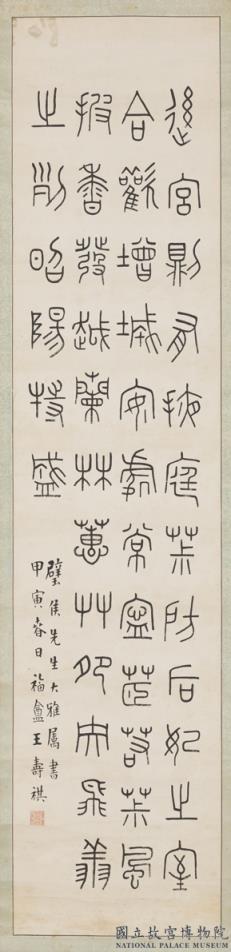 後宮則有掖庭茮防后妃之室
合歡增城安處常寧茞若茮風
披香發越蘭林蕙艸飛翔
之列昭陽特盛
璧侯先生大雅屬書
甲寅春日福盦王壽祺
國立故宮博物院
NATIONAL PALACE MUSEUM